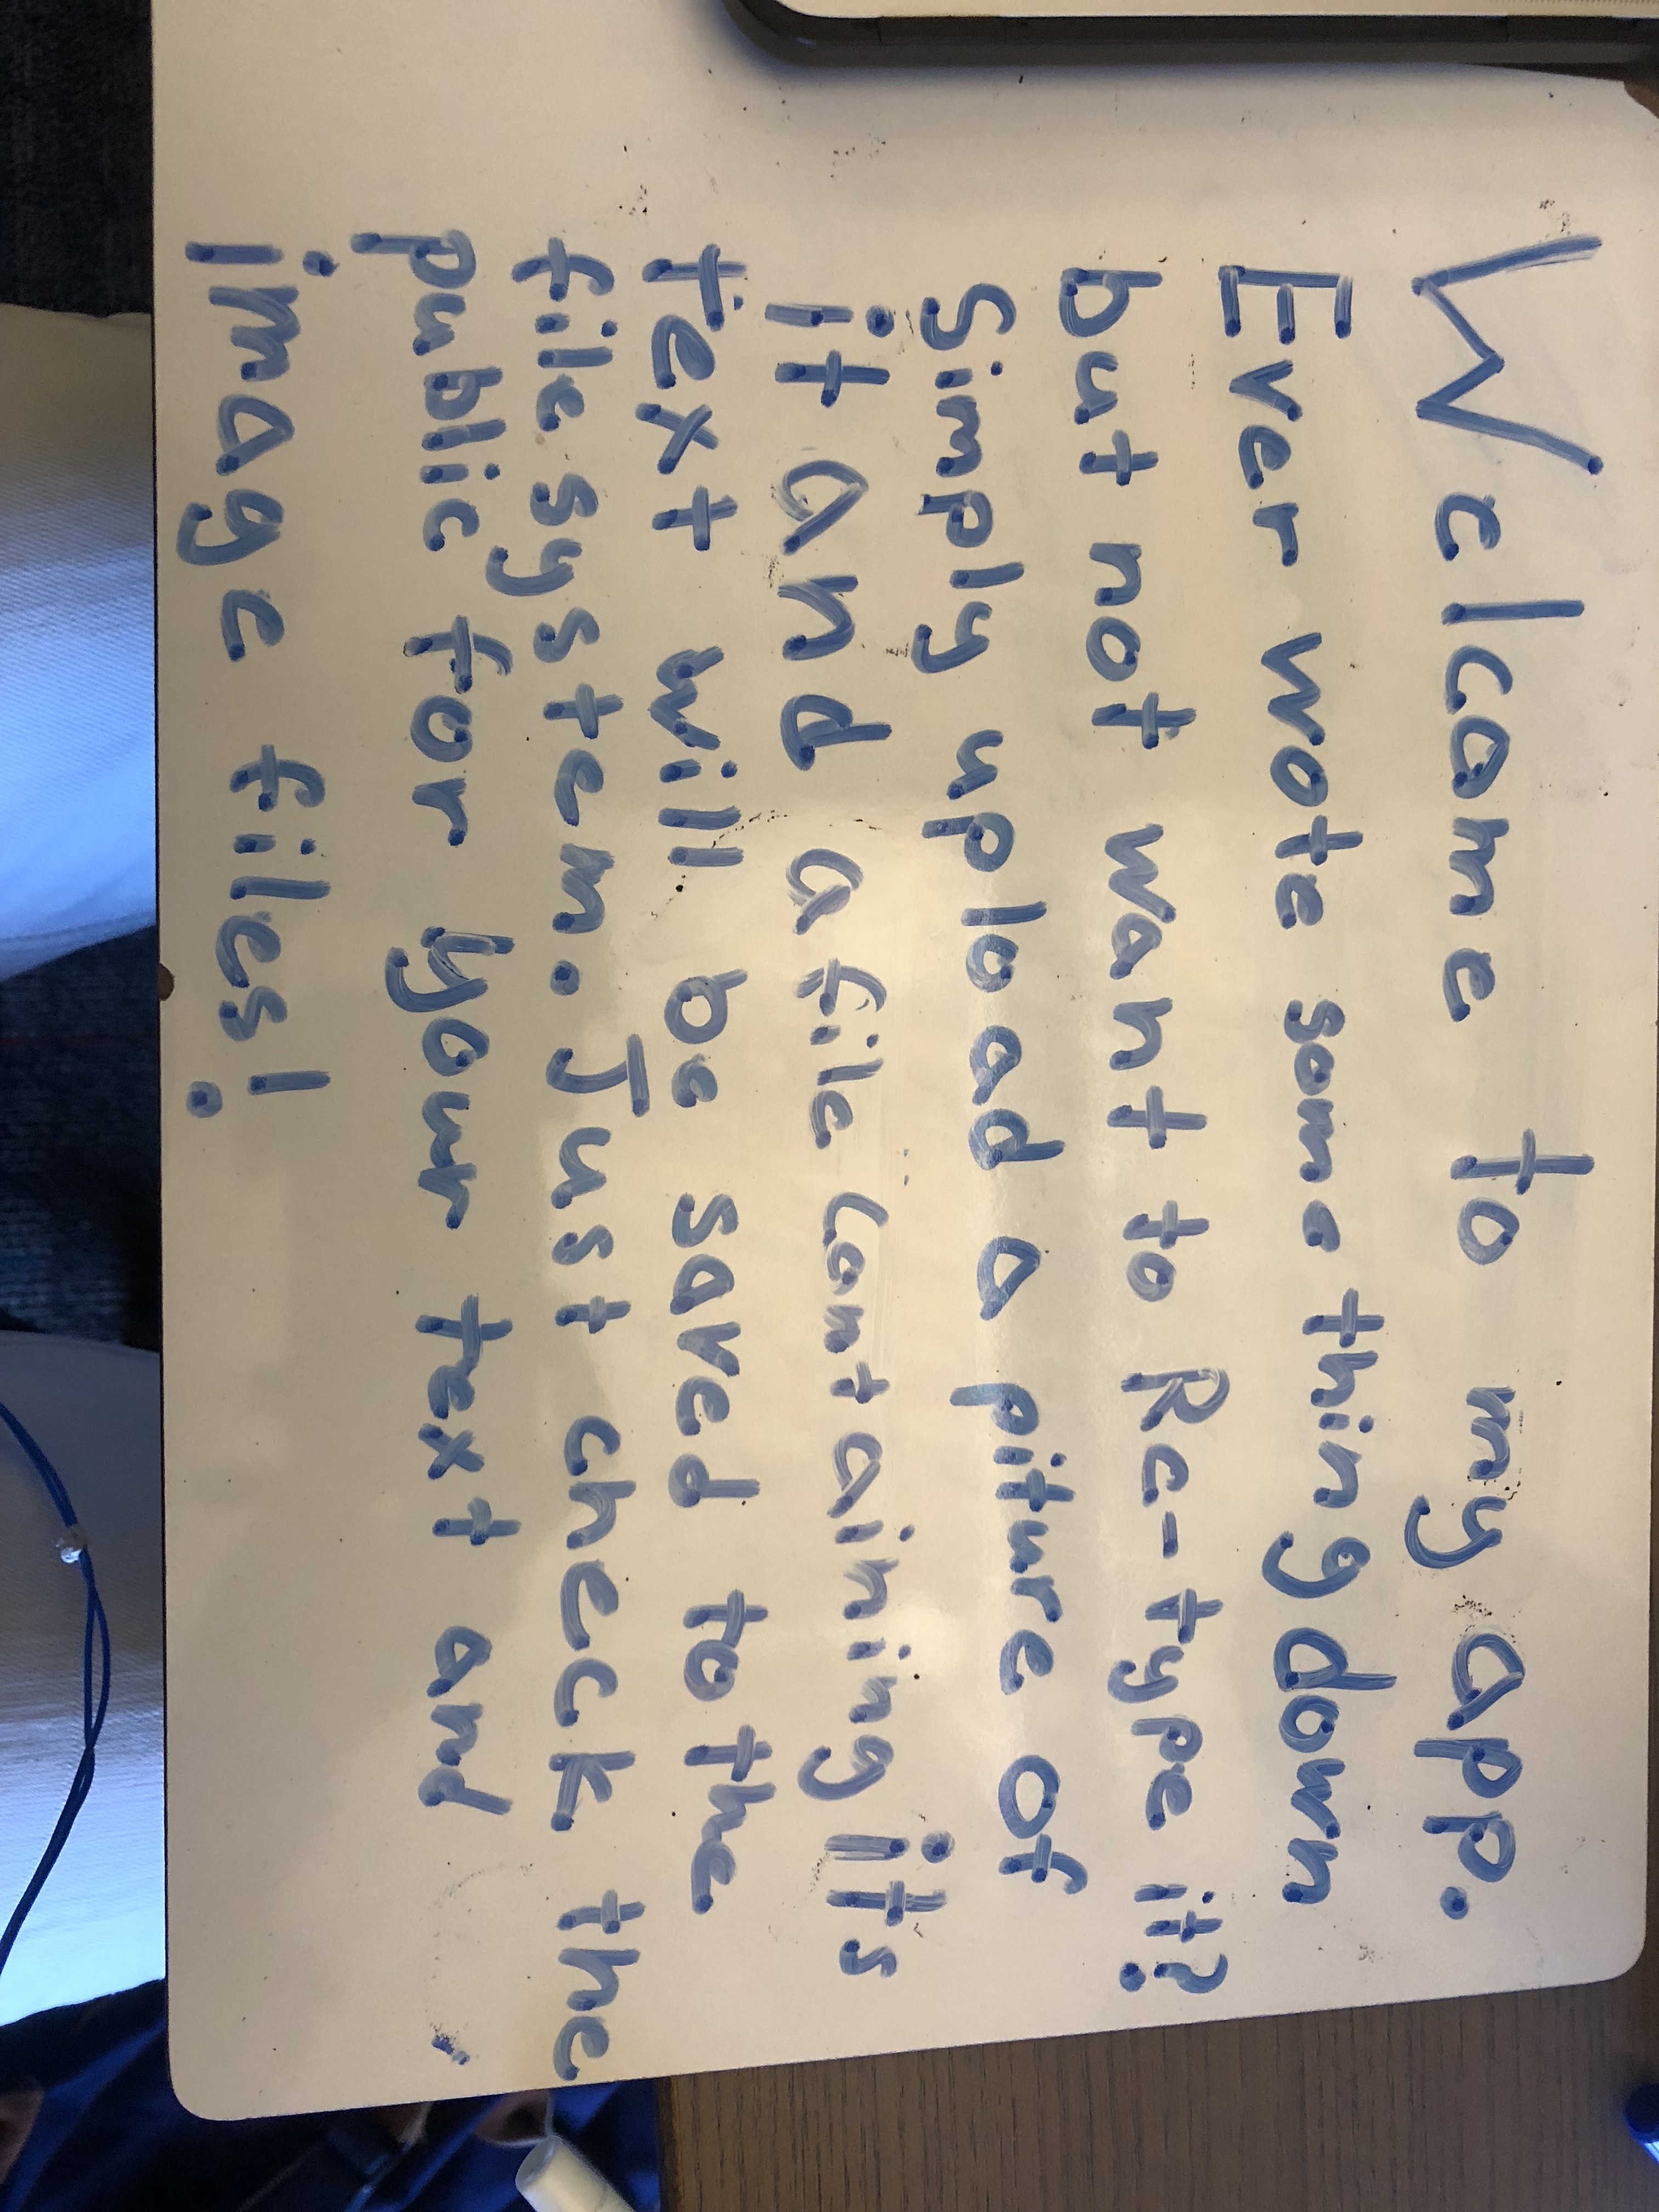 Welcome to my app.
Ever wote some thing down
but not want to Re-type it?
Simply upload a piture of
it and a file containing its
text will be saved to the
file system. Just check the
public for your text and
image files!